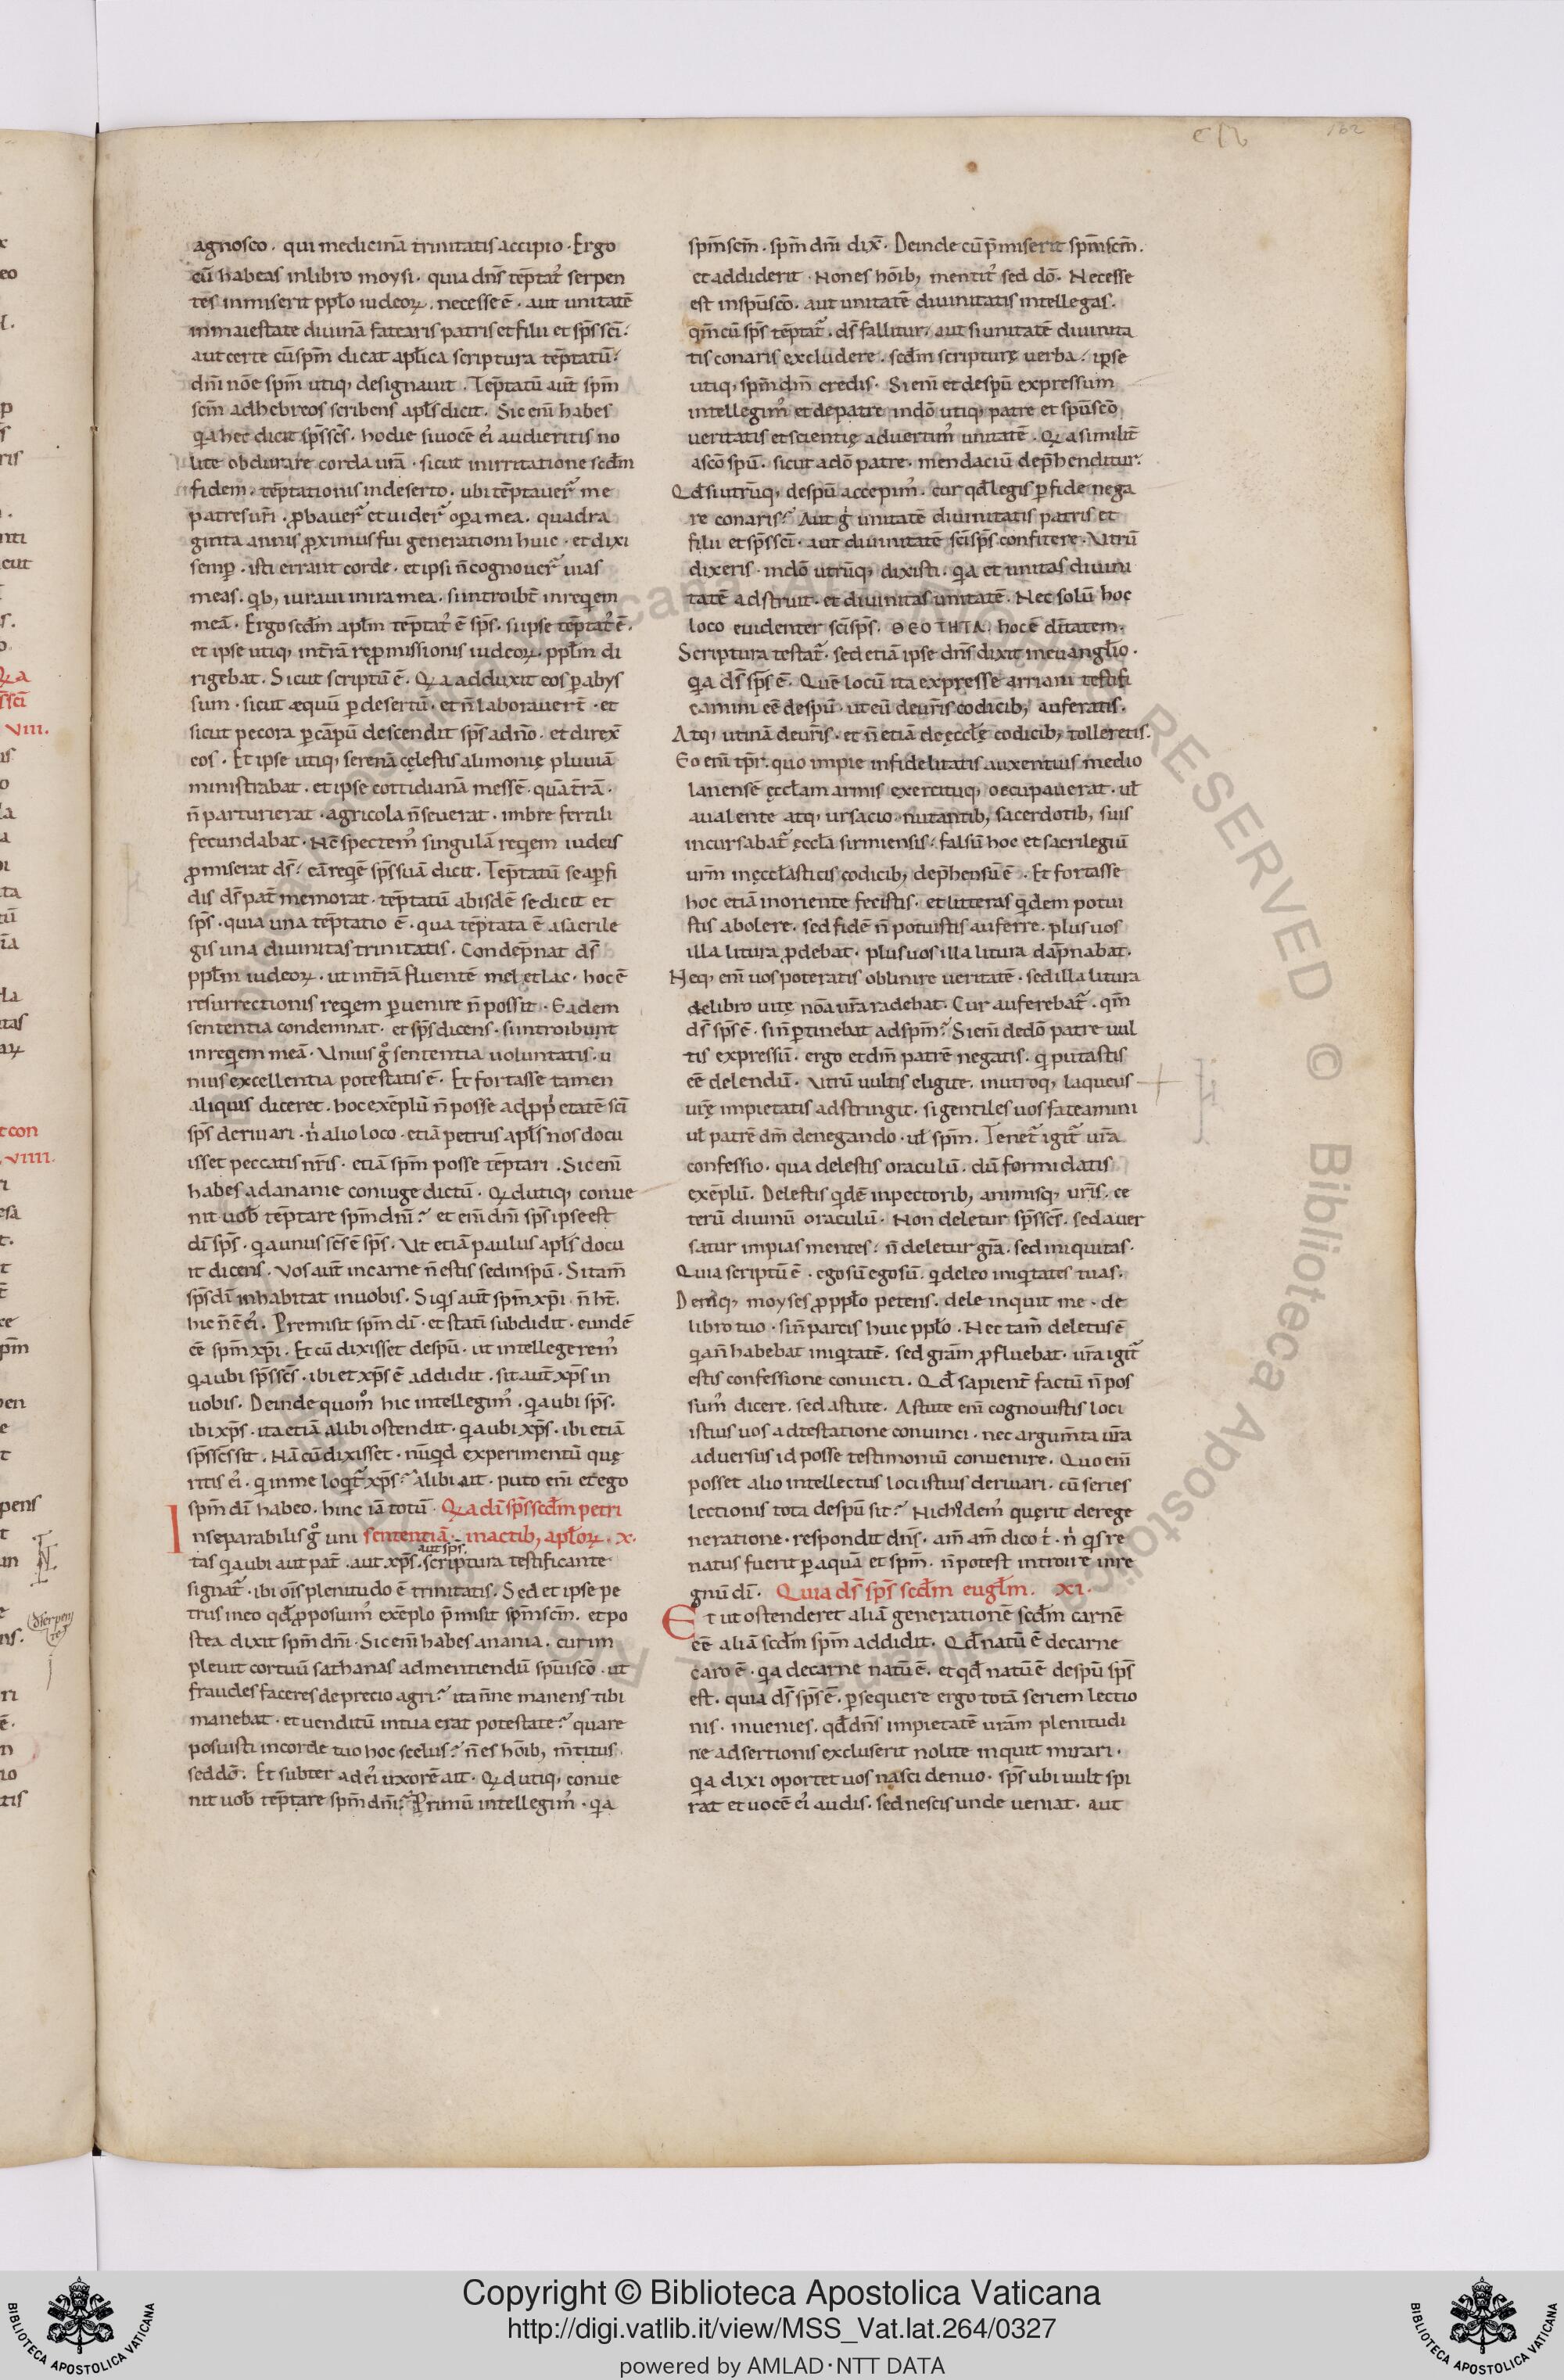 cl&
162
agnosco. qui medicinā trinitatis accipio. Ergo
cū habeas inlibro moysi. quia dn̄s tēptatꝰ serpen
tes inmiserit pplo iudeoꝝ. necesse ē. aut unitatē
inmaiestate diuinā fatearis patris et filii et sp̄s sc̄i.
aut certe cū sp̄m dicat apłica scriptura tēptatū.
dn̄i nōe sp̄m utiq; designauit. Tēptatū aut̄ sp̄m
sc̄m adhebreos scribens apłs dicit. Sic eni̅ habes
qa hec dicit sp̄s sc̄s. hodie si uocē ei᾽ audieritis no
lite obdurare corda urā. sicut inirritatione scd̄m
fidem. tēptationis indeserto. ubi tēptauer̄ me
patres ur̄i. ꝓbauer̄ et uider̄ oꝑa mea. quadra
ginta annis ꝓximus fui generationi huic. et dixi
semꝑ. isti errant corde. et ipsi n̄ cognouer̄ uias
meas. qb; iuraui inira mea. si introibt̄ inreqem
meā. Ergo scd̄m apłm tēptatꝰ ē sp̄s. si ipse tēptatꝰ ē.
et ipse utiq; int̄rā reꝓmissionis iudeoꝝ. ppłm di
rigebat. Sicut scriptū ē. Qa adduxit eos ꝑ abys
sum. sicut æquū ꝑ desertū. et n̄ laborauert̄. et
sicut pecora ꝑ cāpū descendit sp̄s adn̄o. et direx̄
eos. Et ipse utiq; serenā cęlestis alimonię pluuiā
ministrabat. et ipse cottidianā messē. quā t̄rā.
n̄ parturierat. agricola n̄ seuerat. imbre fertili
fecundabat. Nc̄ spectemꝰ singulā reqem iudeis
ꝓmiserat ds̄. eā reqē sp̄s suā dicit. Tēptatū se aꝑfi
dis ds̄ pat̄ memorat. tēptatū abisdē se dicit et
sp̄s. quia una tēptatio ē. qua tēptata ē asacrile
gis una diuinitas trinitatis. Condēpnat ds̄
ppłm iudeoꝝ. ut int̄rā fluentē mel et lac. hoc ē
resurrectionis reqem ꝑuenire n̄ possit. Eadem
sententia condemnat. et sp̄s dicens. si introibunt
inreqem meā. Vnius g° sententia uoluntatis. u
nius excellentia potestatis ē. Et fortasse tamen
aliquis diceret. hoc exēplū n̄ posse adꝓp'etatē sc̄i
sp̄s deriuari. n' alio loco. etiā petrus apłs nos docu
isset peccatis nr̄is. etiā sp̄m posse tēptari. Sic eni̅
habes adananie coniuge dictū. Qd utiq; conue
nit uob̄ tēptare sp̄m dn̄i? et eni̅ dn̄i sp̄s ipse est
dī sp̄s. qa unus sc̄s ē sp̄s. Vt etiā paulus apłs docu
it dicens. Vos aut̄ incarne n̄ estis sed inspū. Si tam̄
sp̄s dī inhabitat inuobis. Siqs aut̄ sp̄m xp̄i n̄ ht̄.
hic n̄ ē ei᾽. Premisit sp̄m dī. et statī subdidit. eundē
eē sp̄m xp̄i. Et cū dixisset despū. ut intellegeremꝰ
qa ubi sp̄s sc̄s. ibi et xp̄s ē addidit. sit aut̄ xp̄s in
uobis. Deinde quom° hic intellegimꝰ. qa ubi sp̄s.
ibi xp̄s. ita etiā alibi ostendit. qa ubi xp̄s. ibi etiā
sp̄s sc̄s sit. Nā cū dixisset. nūqd experimentū quę
ritis ei᾽. qi inme loqt̄ xp̄s? alibi ait. puto eni̅ et ego
sp̄m dī habeo. hinc iā totū. Qa dī sp̄s scd̄m petri
Inseparabilis g° uni sententiā. inactib; apłoꝝ. x.
aut sp̄s.
tas qa ubi aut pat̄. aut xp̄s. scriptura testificante
signat̄. ibi oīs plenitudo ē trinitatis. Sed et ipse pe
trus ineo qd̄ ꝓposuimꝰ exēplo p̄misit sp̄m sc̄m. et po
stea dixit sp̄m dn̄i. Sic eni̅ habes anania. cur im
pleuit cor tuū sathanas admentiendū spūi sc̄o. ut
fraudes faceres de precio agri? ita n̄ne manens tibi
manebat. et uenditū intua erat potestate? quare
posuisti incorde tuo hoc scelus? n̄ es hōib; m̄titus.
sed dō. Et subter ad ei᾽ uxorē ait. Qd utiq; conue
nit uob̄ tēptare sp̄m dn̄i? Primū intellegimꝰ. qa
sp̄m sc̄m. sp̄m dn̄i dix̄. Deinde cū p̄miserit sp̄m sc̄m.
et addiderit. Non es hōib; mentitꝰ sed dō. Necesse
est inspū sc̄o. aut unitatē diuinitatis intellegas.
qm̄ cū sp̄s tēptat̄. ds̄ fallitur. aut si unitatē diuinita
tis conaris excludere. scd̄m scripturę uerba. ipse
utiq; sp̄m dm̄ credis. Si eni̅ et despū expressum
intellegimꝰ et depatre indō utiq; patre et spū sc̄o
ueritatis et scientię aduertimꝰ unitatē. Qa similit̄
asc̄o spū. sicut adō patre. mendaciū dep̄henditur.
Qd̄ si utrūq; despū accepimꝰ. cur qd̄ legis ꝑfide nega
re conaris? Aut g' unitatē diuinitatis patris et
filii et sp̄s sc̄i. aut diuinitatē sc̄i sp̄s confitere. Vtrū
dixeris. indō utrūq; dixisti. qa et unitas diuini
tatē adstruit. et diuinitas unitatē. Nec solū hoc
loco euidenter sc̄i sp̄s. ΘΕΟΤΗΤΑ. hoc ē dītatem.
Scriptura testat̄. sed etiā ipse dn̄s dixit ineuanglio.
qa ds̄ sp̄s ē. Quē locū ita expresse arriani testifi
camini eē despū. ut eū deur̄is codicib; auferatis.
Atq; utinā deur̄is. et n̄ etiā de ęcclę codicib; tolleretis.
Eo eni̅ tp̄r. quo impie infidelitatis auxentius medio
lanensē ęccłam armis exercituq; occupauerat. uł
aualente atq; ursacio nutantib; sacerdotib; suis
incursabat̄ ęccła sirmiensis. falsū hoc et sacrilegiū
ur̄m inęccłasticis codicib; dep̄hensū ē. Et fortasse
hoc etiā inoriente fecistis. et litteras qdem potui
stis abolere. sed fidē n̄ potuistis auferre. plus uos
illa litura ꝓdebat. plus uos illa litura dāpnabat.
Neq; eni̅ uos poteratis oblinire ueritatē. sed illa litura
delibro uitę nōa ur̄a radebat. Cur auferebat̄. qm̄
ds̄ sp̄s ē. sin̄ ꝑtinebat adsp̄m? Si eni̅ dedō patre uul
tis expressū. ergo et dm̄ patrē negatis. qi putastis
eē delendū. Vtrū uultis eligite. inutroq; laqueus
ur̄ę impietatis adstringit. si gentiles uos fateamini
uł patrē dm̄ denegando. uł sp̄m. Tenet̄ igit̄ ur̄a
confessio. qua delestis oraculū. dū formidatis
exēplū. Delestis qdē inpectorib; animisq; ur̄is. ce
terū diuinū oraculū. Non deletur sp̄s sc̄s. sed auer
satur impias mentes. n̄ deletur gr̄a. sed iniquitas.
Quia scriptū ē. ego sū ego sū. qi deleo iniqtates tuas.
Deniq; moyses ꝓ pplo petens. dele inquit me. de
libro tuo. sin̄ parcis huic pplo. Nec tam̄ deletus ē
qa n̄ habebat iniqtatē. sed gr̄am ꝓfluebat. ur̄a igit̄
estis confessione conuicti. Qd̄ sapient̄ factū n̄ pos
sumꝰ dicere. sed astute. Astute eni̅ cognouistis loci
istius uos adtestatione conuinci. nec argum̄ta ur̄a
aduersus id posse testimoniū conuenire. Quo eni̅
posset alio intellectus loci istius deriuari. cū series
lectionis tota despū sit? Nichodemꝰ quęrit derege
neratione. respondit dn̄s. am̄ am̄ dico t'. n' qs re
natus fuerit ꝑ aquā et sp̄m. n̄ potest introire inre
gnū dī. Quia ds̄ sp̄s scd̄m eugłm. xi.
Et ut ostenderet aliā generationē scd̄m carnē
eē aliā scd̄m sp̄m addidit. Qd̄ natū ē decarne
caro ē. qa decarne natū ē. et qd̄ natū ē despū sp̄s
est. quia ds̄ sp̄s ē. ꝑsequere ergo totā seriem lectio
nis. inuenies. qd̄ dn̄s impietatē ur̄am plenitudi
ne adsertionis excluserit nolite inquit mirari.
qa dixi oportet uos nasci denuo. sp̄s ubi uult spi
rat et uocē ei᾽ audis. sed nescis unde ueniat. aut
Copyright © Biblioteca Apostolica Vaticana
http://digi.vatlib.it/view/MSS_Vat.lat.264/0327
powered by AMLAD·NTT DATA
BIBLIOTECA APOSTOLICA VATICANA
BIBLIOTECA APOSTOLICA VATICANA